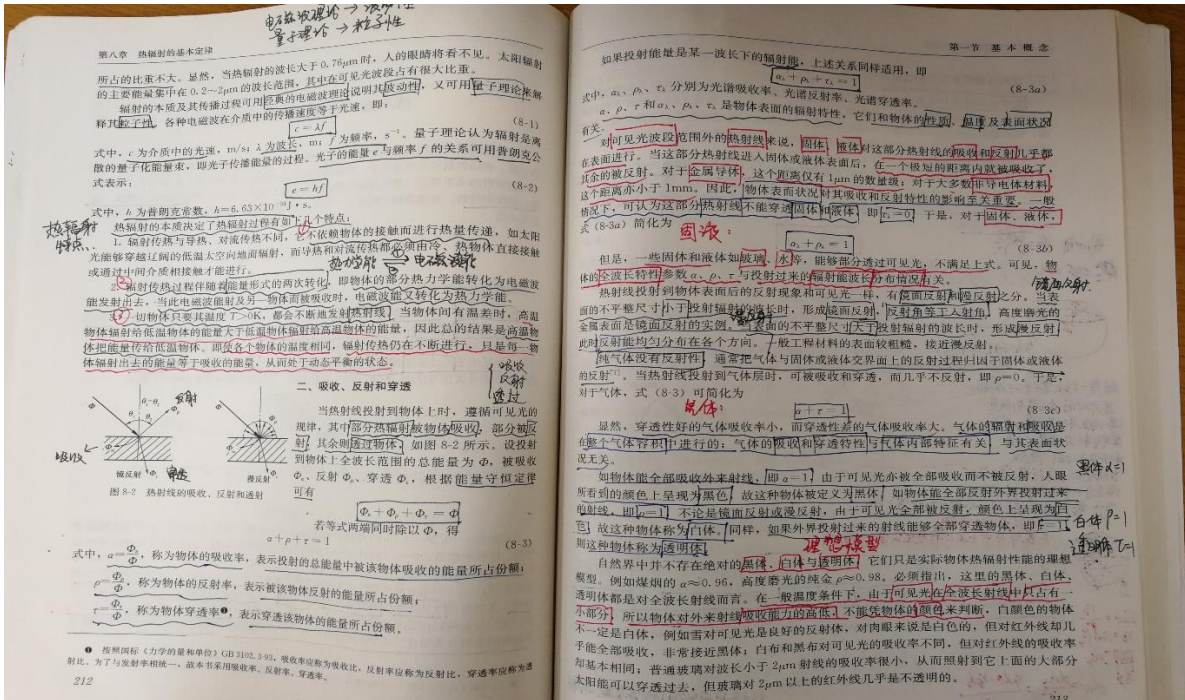 电磁波理论→波动性
量子理论→粒子性
第八章 热辐射的基本定律
所占的比重不大。显然，当热辐射的波长大于0.76μm时，人的眼睛将看不见。太阳辐射
的主要能量集中在0.2~2μm的波长范围，其中在可见光波段占有很大比重。
辐射的本质及其传播过程可用经典的电磁波理论说明其波动性，又可用量子理论来解
释其粒子性。各种电磁波在介质中的传播速度等于光速，即：
c=λf (8-1)
式中，c为介质中的光速，m/s；λ为波长，m；f为频率，s⁻¹。量子理论认为辐射是离
散的量子化能量束，即光子传播能量的过程。光子的能量e与频率f的关系可用普朗克公
式表示：
e=hf (8-2)
式中，h为普朗克常数，h=6.63×10⁻³⁴J·s。
热辐射的本质决定了热辐射过程有如下几个特点：
热辐射
特点
1. 辐射传热与导热、对流传热不同，它不依赖物体的接触而进行热量传递，如太阳
光能够穿越辽阔的低温太空向地面辐射，而导热和对流传热都必须由冷、热物体直接接触
或通过中间介质相接触才能进行。
热力学能 电磁波能
2. 辐射传热过程伴随着能量形式的两次转化，即物体的部分热力学能转化为电磁波
能发射出去，当此电磁波能射及另一物体而被吸收时，电磁波能又转化为热力学能。
3. 一切物体只要其温度T>0K，都会不断地发射热射线。当物体间有温差时，高温
物体辐射给低温物体的能量大于低温物体辐射给高温物体的能量，因此总的结果是高温物
体把能量传给低温物体。即使各个物体的温度相同，辐射传热仍在不断进行，只是每一物
体辐射出去的能量等于吸收的能量，从而处于动态平衡的状态。
吸收
反射
透过
反射
吸收
穿透
镜反射
漫反射
图8-2 热射线的吸收、反射和透射
二、吸收、反射和穿透
当热射线投射到物体上时，遵循可见光的
规律，其中部分热辐射被物体吸收，部分被反
射，其余则透过物体，如图8-2所示。设投射
到物体上全波长范围的总能量为Φ，被吸收
Φα、反射Φρ、穿透Φτ，根据能量守恒定律
可有
Φα+Φρ+Φτ=Φ
若等式两端同时除以Φ，得
α+ρ+τ=1 (8-3)
式中，α=Φα/Φ，称为物体的吸收率，表示投射的总能量中被该物体吸收的能量所占份额；
ρ=Φρ/Φ，称为物体的反射率，表示被该物体反射的能量所占份额；
τ=Φτ/Φ，称为物体穿透率❶，表示穿透该物体的能量所占份额。
❶ 按照国标《力学的量和单位》GB 3102.3-93，吸收率应称为吸收比，反射率应称为反射比，穿透率应称为透
射比。为了与发射率相统一，故本书采用吸收率、反射率、穿透率。
212
第一节 基本概念
如果投射能量是某一波长下的辐射能，上述关系同样适用，即
αλ+ρλ+τλ=1 (8-3a)
式中，αλ、ρλ、τλ分别为光谱吸收率、光谱反射率、光谱穿透率。
α、ρ、τ和αλ、ρλ、τλ是物体表面的辐射特性，它们和物体的性质、温度及表面状况
有关。
对可见光波段范围外的热射线来说，固体、液体对这部分热射线的吸收和反射几乎都
在表面进行。当这部分热射线进入固体或液体表面后，在一个极短的距离内就被吸收了，
其余的被反射。对于金属导体，这个距离仅有1μm的数量级；对于大多数非导电体材料，
这个距离亦小于1mm。因此，物体表面状况对其吸收和反射特性的影响至关重要。一般
情况下，可认为这部分热射线不能穿透固体和液体，即τλ=0。于是，对于固体、液体，
式（8-3a）简化为
固液：
αλ+ρλ=1 (8-3b)
但是，一些固体和液体如玻璃、水等，能够部分透过可见光，不满足上式。可见，物
体的全波长特性参数α、ρ、τ与投射过来的辐射能波长分布情况有关。
镜面反射
热射线投射到物体表面后的反射现象和可见光一样，有镜面反射和漫反射之分。当表
面的不平整尺寸小于投射辐射的波长时，形成镜面反射，反射角等于入射角。高度磨光的
漫反射
金属表面是镜面反射的实例。当表面的不平整尺寸大于投射辐射的波长时，形成漫反射，
此时反射能均匀分布在各个方向。一般工程材料的表面较粗糙，接近漫反射。
纯气体没有反射性，通常把气体与固体或液体交界面上的反射过程归因于固体或液体
的反射。当热射线投射到气体层时，可被吸收和穿透，而几乎不反射，即ρ=0。于是，
对于气体，式（8-3）可简化为
气体：
α+τ=1 (8-3c)
显然，穿透性好的气体吸收率小，而穿透性差的气体吸收率大。气体的辐射和吸收是
在整个气体容积中进行的；气体的吸收和穿透特性与气体内部特征有关，与其表面状
况无关。
如物体能全部吸收外来射线，即α=1，由于可见光亦被全部吸收而不被反射，人眼
黑体α=1
所看到的颜色上呈现为黑色，故这种物体被定义为黑体；如物体能全部反射外界投射过来
的射线，即ρ=1，不论是镜反射或漫反射，由于可见光全部被反射，颜色上呈现为白
色，故这种物体称为白体。同样，如果外界投射过来的射线能够全部穿透物体，即τ=1，
白体ρ=1
则这种物体称为透明体。
透明体τ=1
理想模型
自然界中并不存在绝对的黑体、白体与透明体，它们只是实际物体热辐射性能的理想
模型。例如煤烟的α≈0.96，高度磨光的纯金ρ≈0.98。必须指出，这里的黑体、白体、
透明体都是对全波长射线而言。在一般温度条件下，由于可见光在全波长射线中只占有一
小部分，所以物体对外来射线吸收能力的高低，不能凭物体的颜色来判断，白颜色的物体
不一定是白体，例如雪对可见光是良好的反射体，对肉眼来说是白色的，但对红外线却几
乎能全部吸收，非常接近黑体；白布和黑布对可见光的吸收率不同，但对红外线的吸收率
却基本相同；普通玻璃对波长小于2μm射线的吸收率很小，从而照射到它上面的大部分
太阳能可以穿透过去，但玻璃对2μm以上的红外线几乎是不透明的。
213